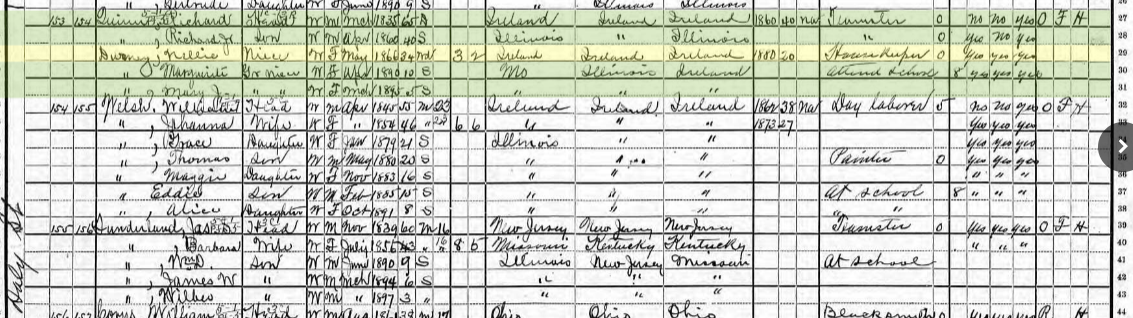 Gertrude Daughter W F June 1890 9 S Illinois Illinois 26
153 154 Quinn, Richard Head W M Mch 1835 65 Ireland Ireland Ireland 1860 40 Na Teamster 0 no no yes O F H 27
" , Richard Jr Son W M Apr 1860 40 S Illinois " Illinois " 0 yes no yes 28
Nellie Niece W F May 1866 34 3 2 Ireland Ireland Ireland 1880 20 Housekeeper 0 yes yes yes 29
" , Marguerite Gr niece W F Apr 1890 10 S Mo Illinois Ireland Attend School 8 yes yes yes 30
" , Mary J " W F Mch 1895 5 S " " " 31
154 155 Welsh, Head W M Apr 1845 55 M 23 Ireland Ireland Ireland 1862 38 Na Day laborer 5 no no yes O F H 32
" , Johanna Wife W F " 1854 46 " 23 6 6 " " " 1873 27 yes yes yes 33
" , Grace Daughter W F Jan 1879 21 S Illinois " " yes yes yes
" , Thomas Son W M May 1880 20 S " " " Painter 0 yes yes yes
" Maggie Daughter W F Nov 1883 16 S " " " " " " 36
" Eddie Son W M Feb 1885 15 S " " " At school 8 " " " 37
" , Alice Daughter W F Oct 1891 8 S " " " 38
155 156 Sunderland, Jas Head W M Nov 1839 60 M 16 New Jersey New Jersey New Jersey Teamster 0 yes yes yes O F H 39
" , Barbara Wife W F 1856 43 " 16 8 5 Missouri Kentucky Kentucky " " " 40
" , Wm D. Son W M June 1890 9 S Illinois New Jersey Missouri At school 41
" , James W " W M Mch 1894 6 S " " " 42
" , Wilber " W M " 1897 3 " " " " 43
156 157 William Head W M Aug Ohio Ohio Ohio Blacksmith R H 44
St